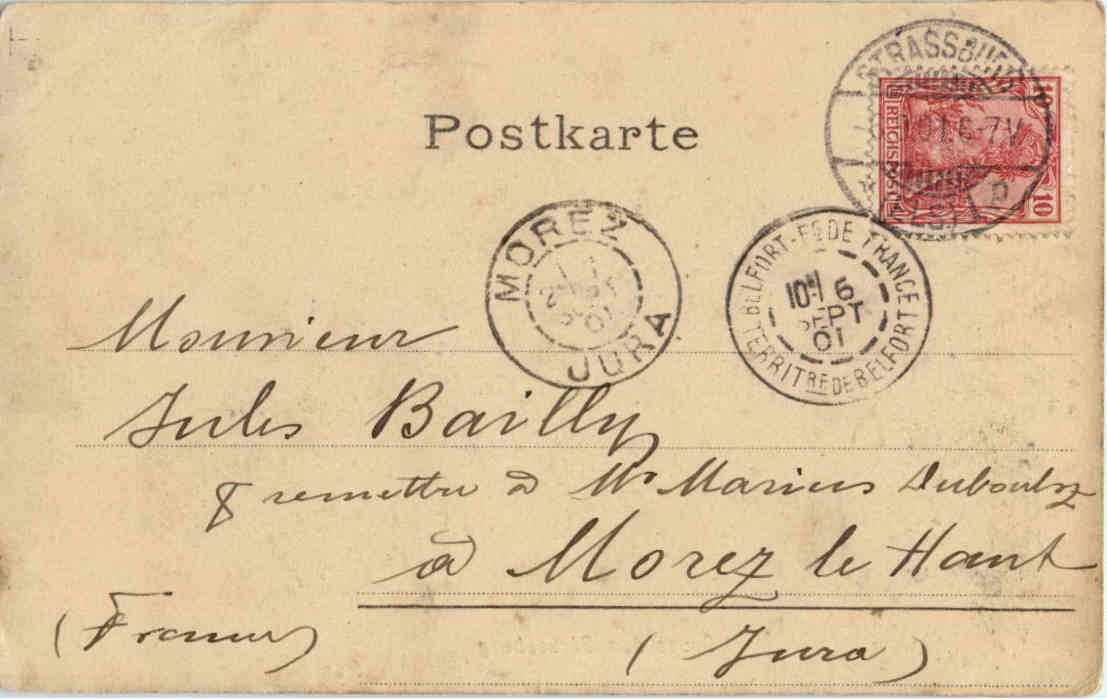 Postkarte
STRASSBURG
6-7V
REICHSPOST
10
MOREZ
01
JURA
BELFORT-FR DE FRANCE
10H 6
SEPT
01
TERRITRE DE BELFORT
Monsieur
Jules Bailly
p remettre à Mr Marius
à Morez le Haut
(France)
(Jura)